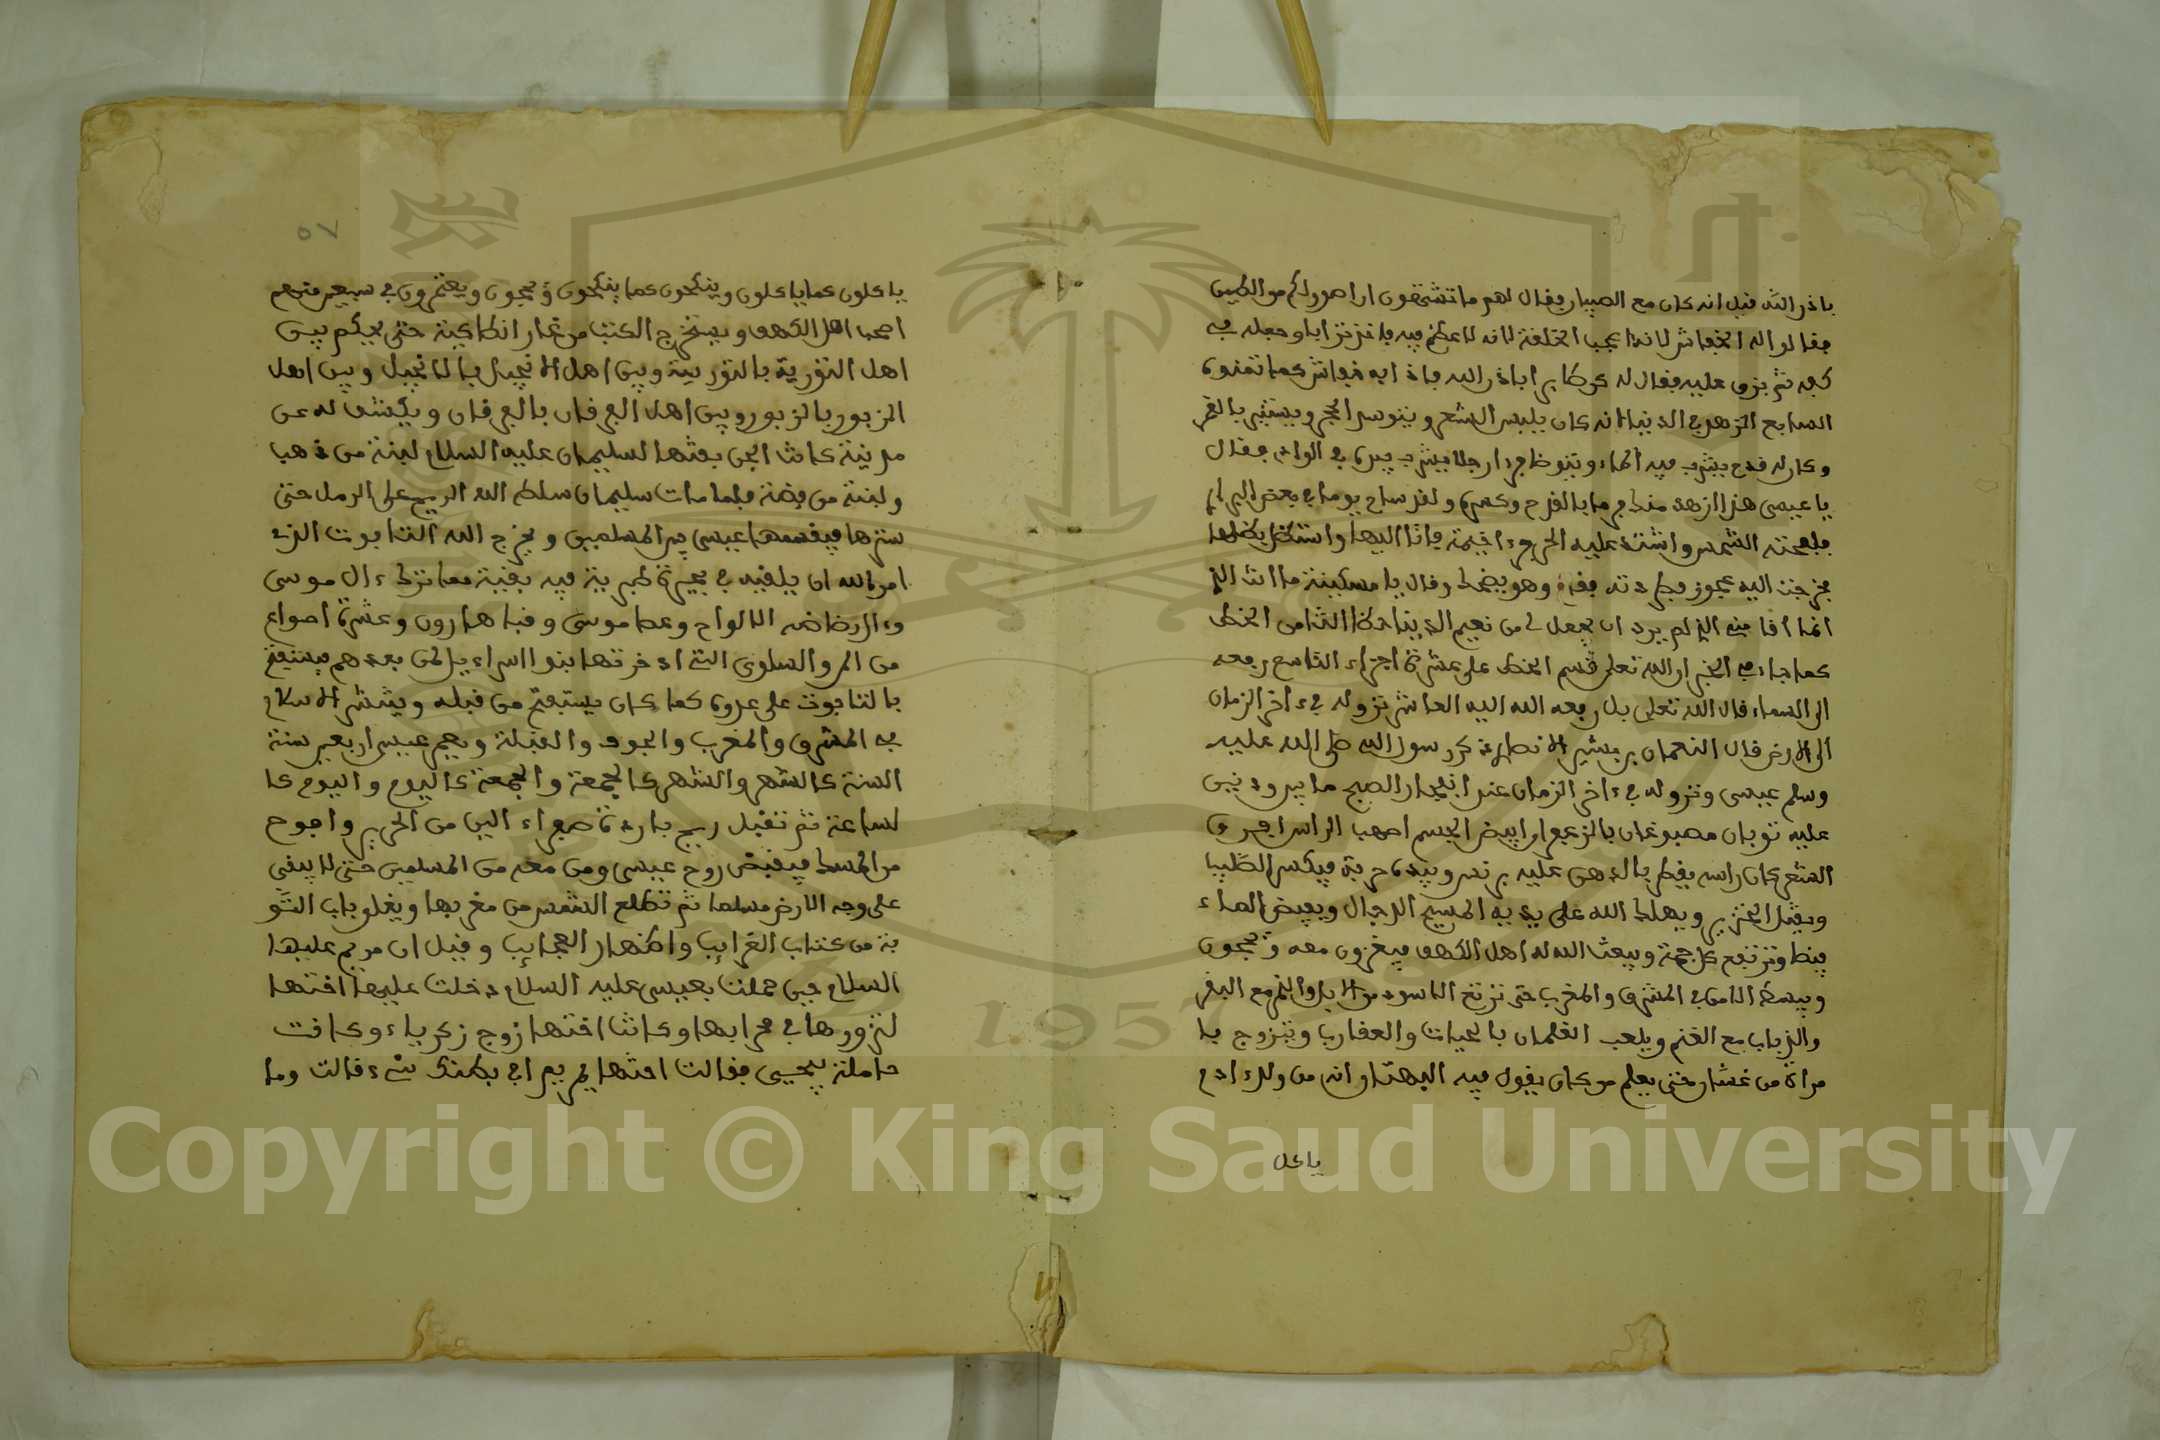 باذن الله قيل انه كان مع الصبيان فقال لهم ما تشتهون ان اصور لكم من الطين
فقالوا له الخفاش لانه اعجب الخلقة لانه لا عظم فيه فاخذ ترابا وجعله في
كفه ثم بزق عليه فقال له كن طايرا باذن الله فاذا به خفاش كما تمنوه
السابع الزهد في الدنيا انه كان يلبس الشعر ويتوسد الحجر ويستنير بالقمر
وكان له قدح يشرب فيه الماء ويتوظا فرءا رجلا يشرب بيده في الوادي فقال
يا عيسى هذا ازهد منك فرما بالقدح وكسره ولقد ساح يوما في بعض البراري
فلفحته الشمس واشتد عليه الحر فرءا خيمة فاتا اليها واستظل بظلها
فخرجت اليه عجوز فطردته فقام وهو يضحك وقال يا مسكينة ما انت الذي
انما اقامني الذي لم يرد ان يجعل لي من نعيم الدنيا حظا الثامن الخط
كما جاء في الخبر ان الله تعلى قسم الخط على عشرة اجزاء التاسع رفعه
الى السماء قال الله تعلى بل رفعه الله اليه العاشر نزوله في ءاخر الزمان
الى الارض قال النعمان بن بشير الانصاري ذكر رسول الله صلى الله عليه
وسلم عيسى ونزوله في ءاخر الزمان عند انفجار الصبح ما بين
عليه ثوبان مصبوغان بالزعفران ابيض الجسم اصهب الراس افرق
الشعر كان راسه يقطر بالدهن عليه برنس وبيده حربة فيكسر الصليب
ويقتل الخنزير ويهلك الله على يديه المسيح الدجال ويفيض الماء
وترتفع كل حمة ويبعث الله له اهل الكهف فيغزون معه ويحجون
ويبسط الامن في المشرق والمغرب حتى ترتع الاسود مع الابل والنمر مع البقر
والذياب مع الغنم ويلعب الغلمان بالحيات والعقارب ويتزوج با
مراة من غسان حتى يعلم من كان يقول فيه البهتان انه من ولد ءادم
ياكل
٥٧
ياكلون كما ياكلون وينكحون كما ينكحون ويحجون ويعتمرون في سبعين منهم
اصحاب اهل الكهف ويستخرج الكتب من غار انطاكية حتى يحكم بين
اهل التورية بالتورية وبين اهل الانجيل بالانجيل وبين اهل
الزبور بالزبور وبين اهل الفرقان بالفرقان ويكشف له عن
مدينة كانت الجن بنتها لسليمان عليه السلام لبنة من ذهب
ولبنة من فضة فلما مات سليمان سلط الله الريح على الرمل حتى
سترها فيقسمها عيسى بين المسلمين ويخرج الله التابوت الذي
امر الله ان يلقيه في بحيرة طبرية فيه بقية مما ترك ءال موسى
الالواح وعصا موسى وقبا هارون وعشرة اصواع
من المن والسلوى التي ادخرتها بنوا اسراءيل لمن بعدهم فيستفتح
بالتابوت على عدوه كما كان يستفتح من قبله وينشر الاسلام
في المشرق والمغرب والجوف والقبلة ويعمر عيسى اربعين سنة
السنة كالشهر والشهر كالجمعة والجمعة كاليوم واليوم كا
لساعة ثم تقبل ريح باردة صفراء الين من الحرير وافوح
من المسك فيقبض روح عيسى ومن معه من المسلمين حتى لا يبقى
على وجه الارض مسلما ثم تطلع الشمس من مغربها ويغلق باب التو
بة من كتاب الغرايب واظهار العجايب وقيل ان مريم عليها
السلام حين حملت بعيسى عليه السلام دخلت عليها اختها
لتزورها في محرابها وكانت اختها زوج زكرياء وكانت
حاملة بيحيى فقالت اختها يا مريم ارى في بطنك شيء قالت وما
Copyright © King Saud University
1957